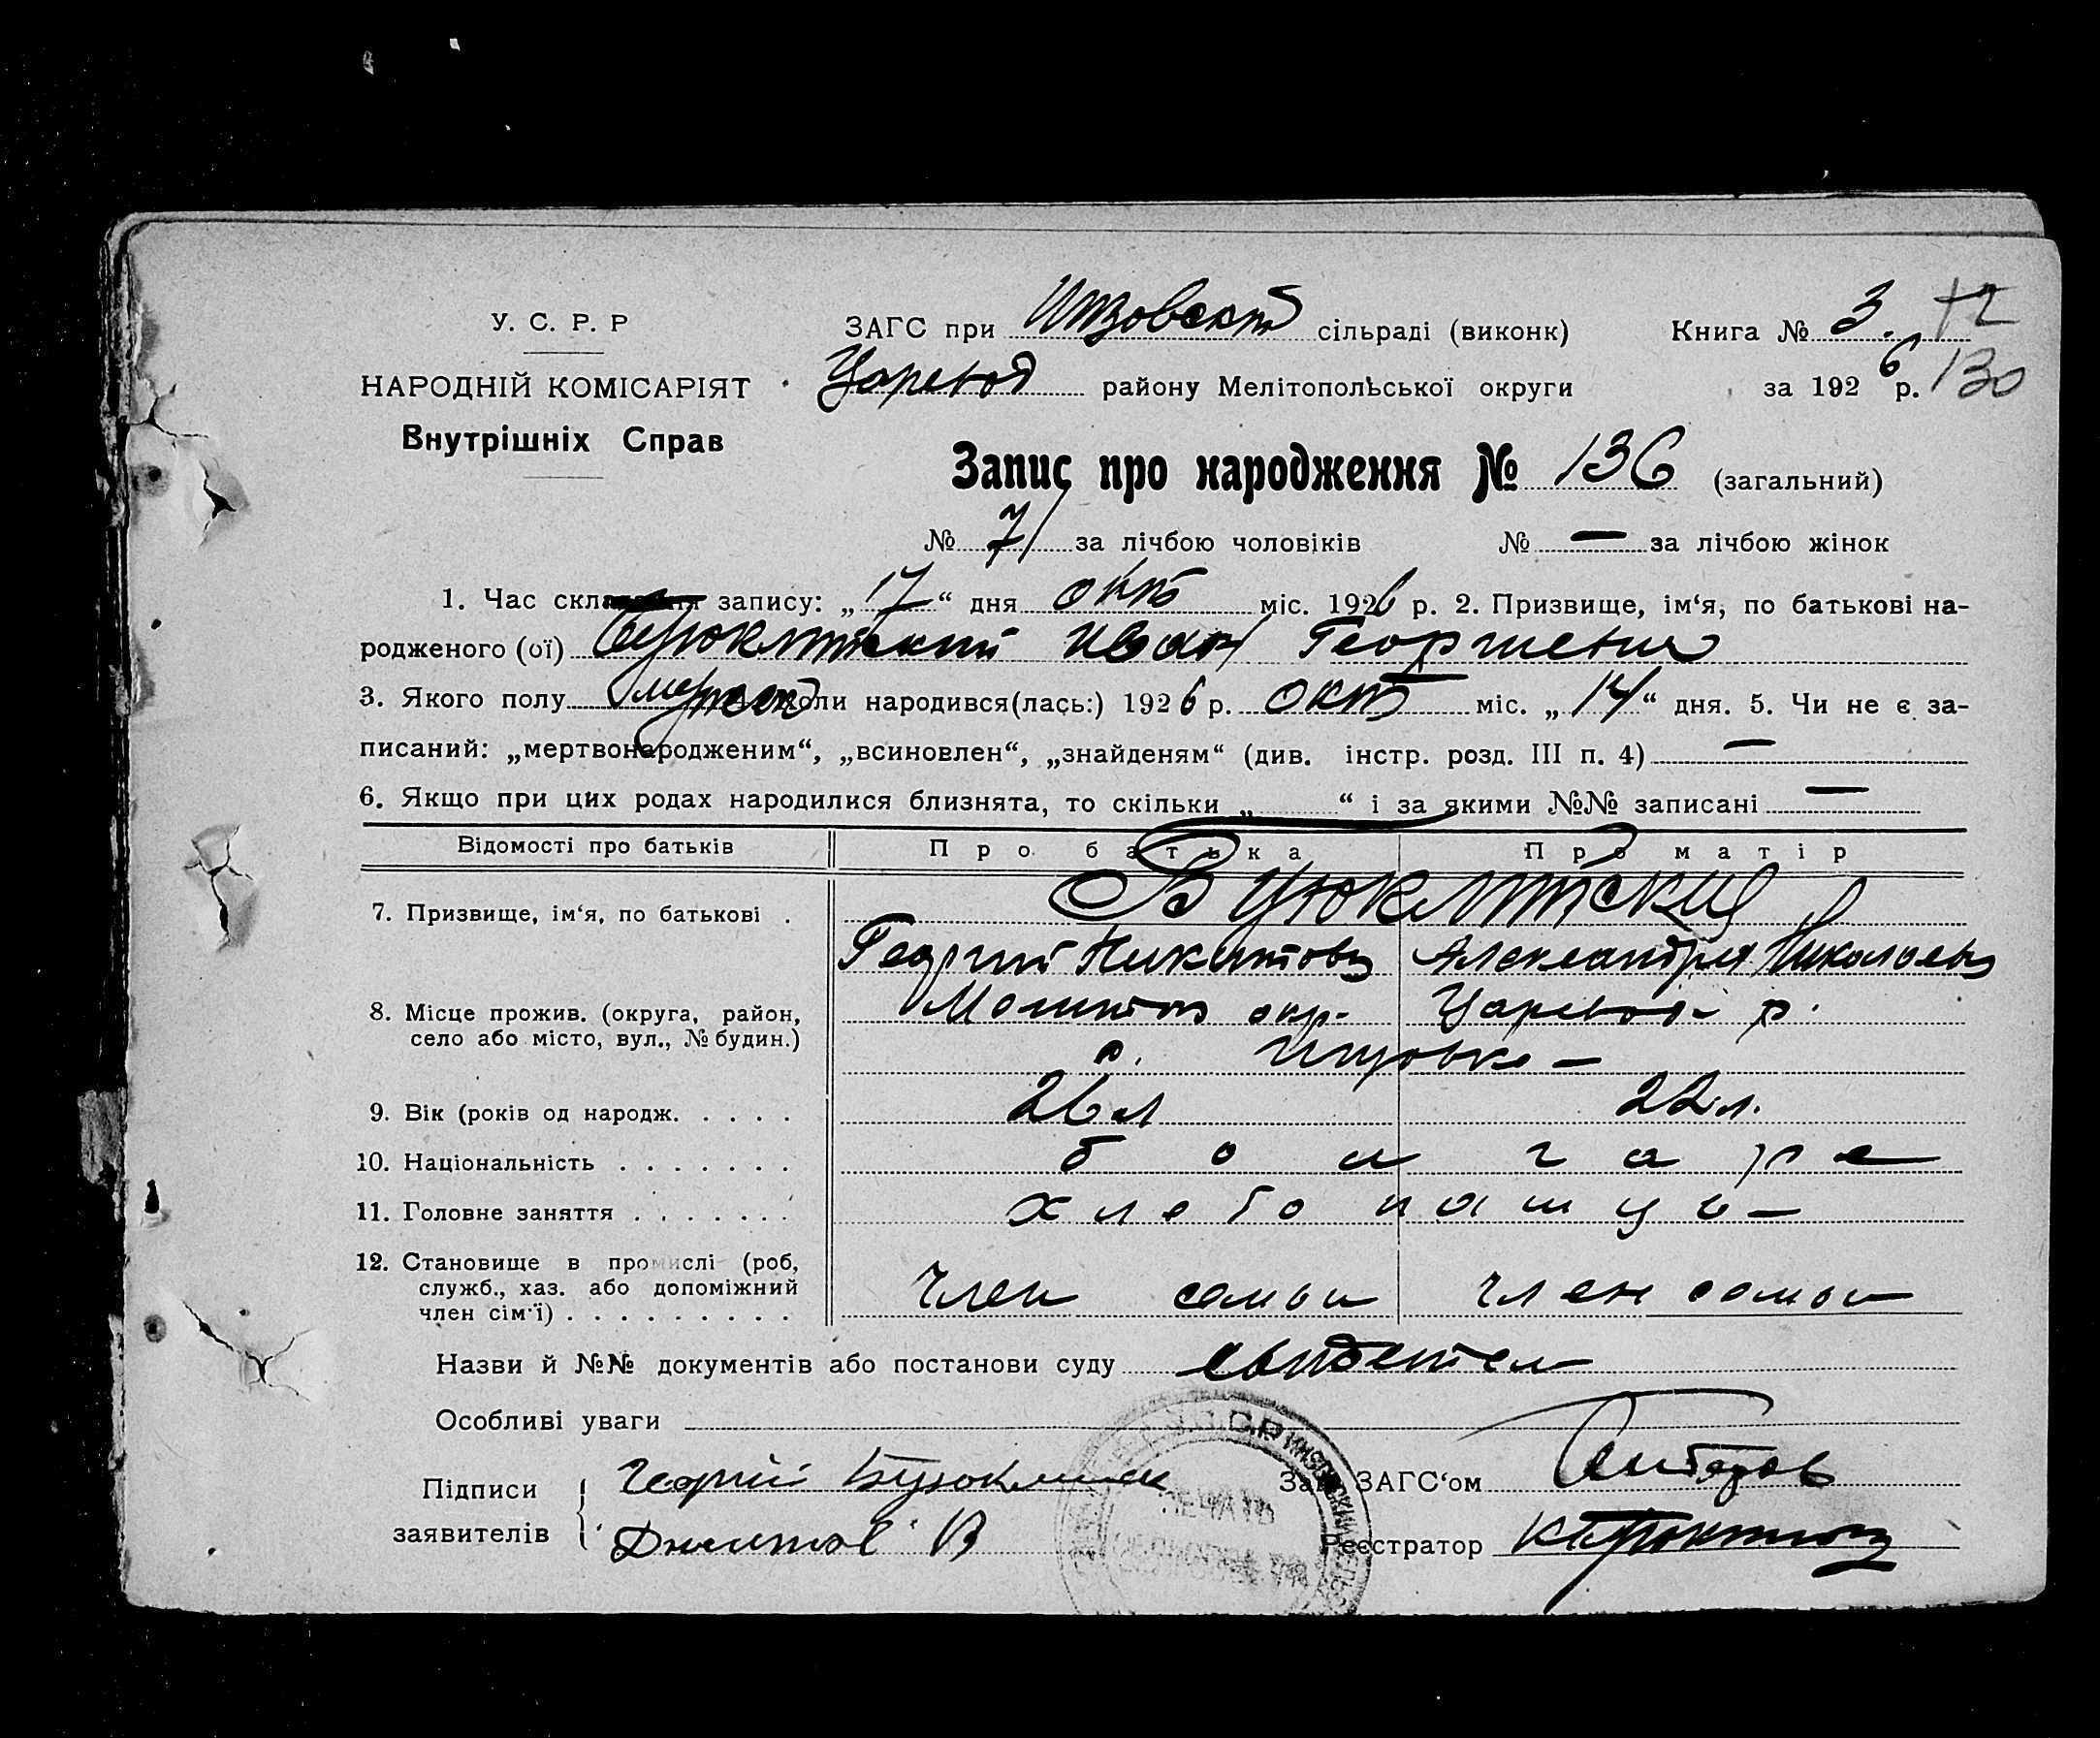 У. С. Р. Р
НАРОДНІЙ КОМІСАРІЯТ
Внутрішніх Справ
ЗАГС при сільраді (виконк)
Книга № 3.
району Мелітопольської округи
за 1926 р. 130
Запис про народження № 136 (загальний)
№ 71 за лічбою чоловіків № — за лічбою жінок
1. Час складання запису: „17“ дня окт міс. 1926 р. 2. Призвище, ім‘я, по батькові на-
родженого (ої) Иван Георгиевич
3. Якого полу коли народився(лась:) 1926 р. окт міс. „14“ дня. 5. Чи не є за-
писаний: „мертвонародженим“, „всиновлен“, „знайденям“ (див. інстр. розд. III п. 4) —
6. Якщо при цих родах народилися близнята, то скільки „ “ і за якими №№ записані —
Відомості про батьків Про батька Про матір
7. Призвище, ім‘я, по батькові .
Георгий Никитов Александра Николаевн
8. Місце прожив. (округа, район,
село або місто, вул., № будин.)
окр. р.
с.
9. Вік (років од народж. . . . . 26 л 22 л.
10. Національність . . . . . . . болгаре
11. Головне заняття . . . . . . . хлебопашцы
12. Становище в промислі (роб,
служб., хаз. або допоміжний
член сім‘ї) . . . . . . . . . член семьи член семьи
Назви й №№ документів або постанови суду
Особливі уваги
Підписи
заявителів
Георгий
Зав. ЗАГС‘ом
Реєстратор
ПЕЧАТЬ